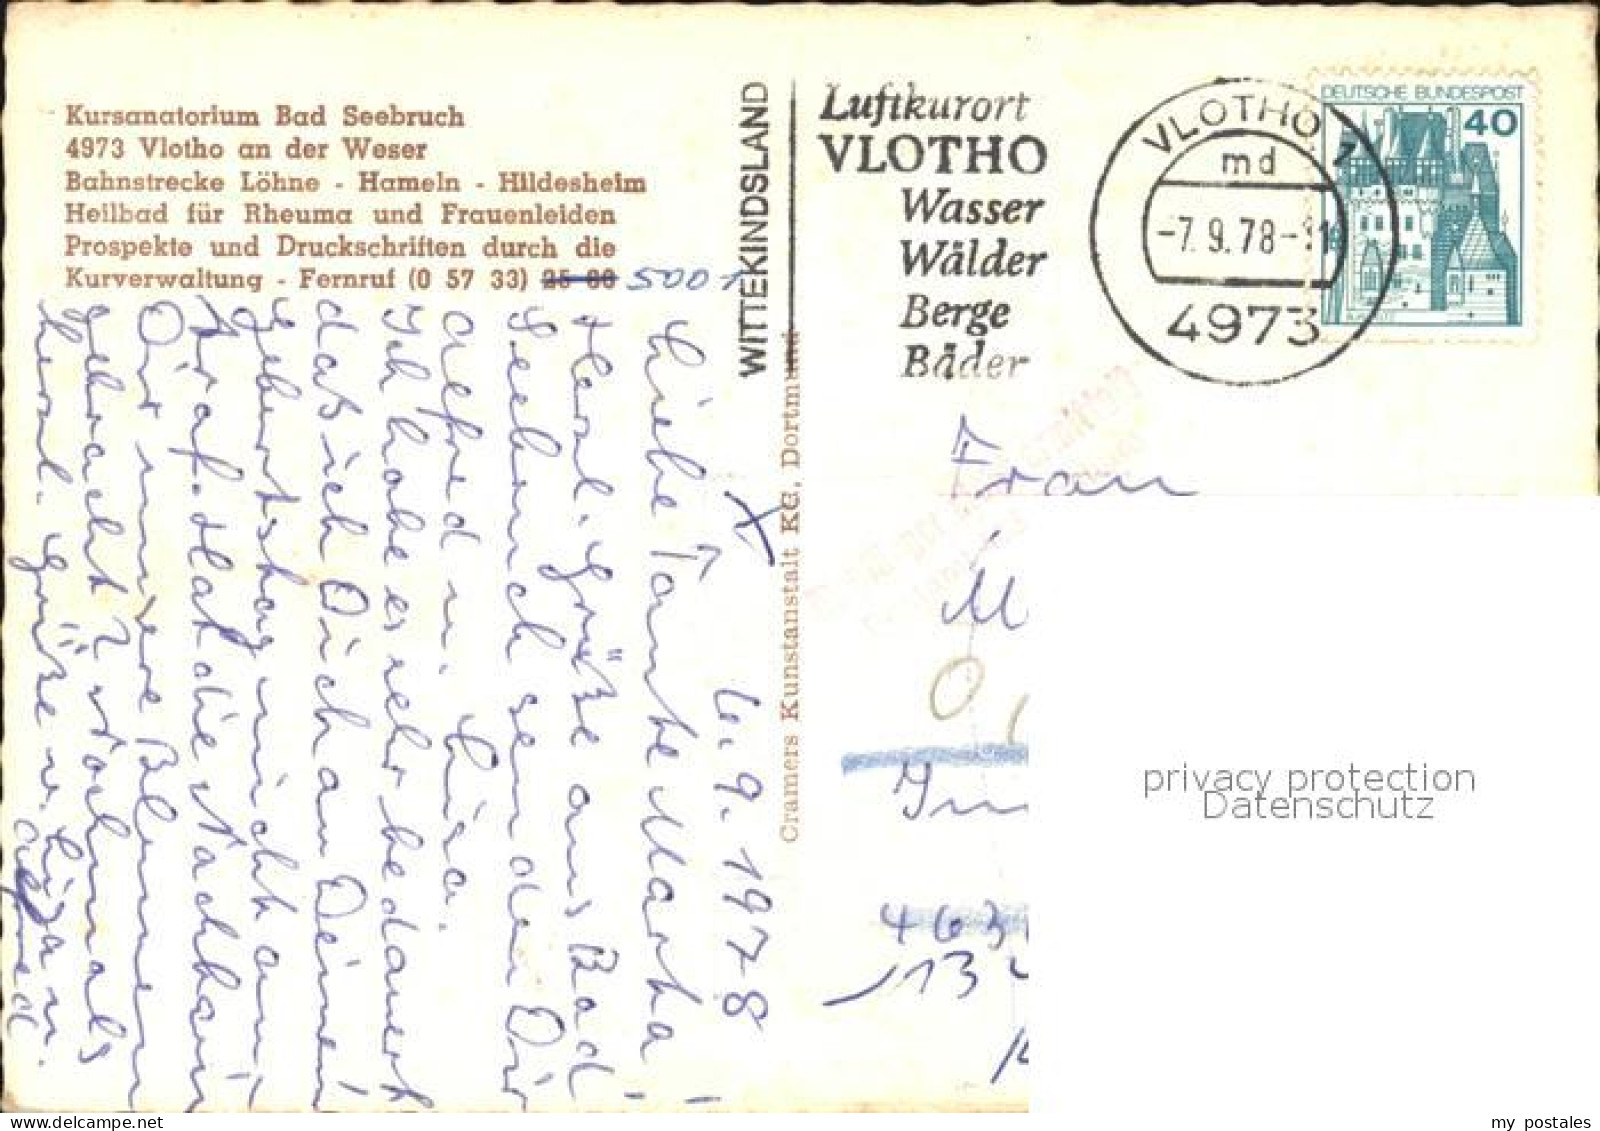 Kursanatorium Bad Seebruch
4973 Vlotho an der Weser
Bahnstrecke Löhne - Hameln - Hildesheim
Heilbad für Rheuma und Frauenleiden
Prospekte und Druckschriften durch die
Kurverwaltung - Fernruf (0 57 33) 25 00 5001
6.9.1978
Liebe Tante Martha!
Herzl. Grüße aus Bad
Seebruch senden Dir
Alfred u. Luisa.
Ich habe es sehr bedauert
daß ich Dich an Deinem
Geburtstag nicht an-
traf. Hat die Nachbarin
Dir unsere Blumen
gebracht? Nochmals
herzl. Grüße v. Luisa u.
Alfred
Cramers Kunstanstalt KG, Dortmund
WITTEKINDSLAND
Luftkurort
VLOTHO
Wasser
Wälder
Berge
Bäder
VLOTHO 1
md
-7.9.78-
4973
DEUTSCHE BUNDESPOST
40
Frau
M
463
13
privacy protection
Datenschutz
my postales